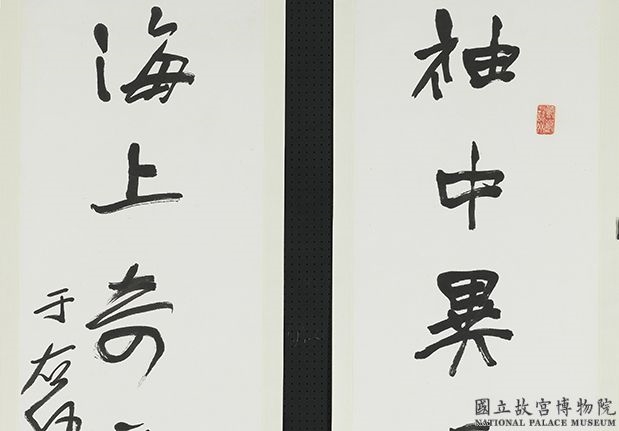 袖中異
海上奇
于右任
國立故宮博物院
NATIONAL PALACE MUSEUM